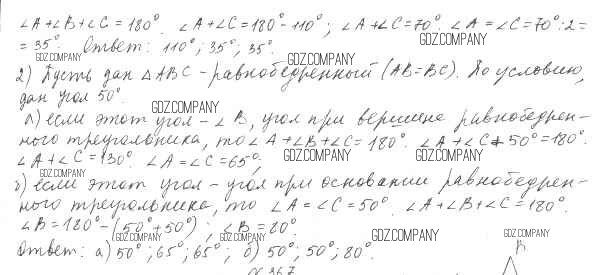 ∠A+∠B+∠C=180°. ∠A+∠C=180°-110°; ∠A+∠C=70°. ∠A=∠C=70°:2=
=35°. Ответ: 110°; 35°; 35°.
GDZ.COMPANY
GDZ.COMPANY
2) Пусть дан △ABC - равнобедренный (AB=BC). По условию,
дан угол 50°.
GDZ.COMPANY
а) если этот угол - ∠B, угол при вершине равнобедрен-
ного треугольника, то ∠A+∠B+∠C=180°. ∠A+∠C+50°=180°.
∠A+∠C=130°. ∠A=∠C=65°;
GDZ.COMPANY
GDZ.COMPANY
GDZ.COMPANY
б) если этот угол - угол при основании равнобедрен-
ного треугольника, то ∠A=∠C=50°. ∠A+∠B+∠C=180°.
∠B=180°-(50°+50°); ∠B=80°.
GDZ.COMPANY
GDZ.COMPANY
GDZ.COMPANY
GDZ.COMPANY
Ответ: а) 50°; 65°; 65°; б) 50°; 50°; 80°.
B